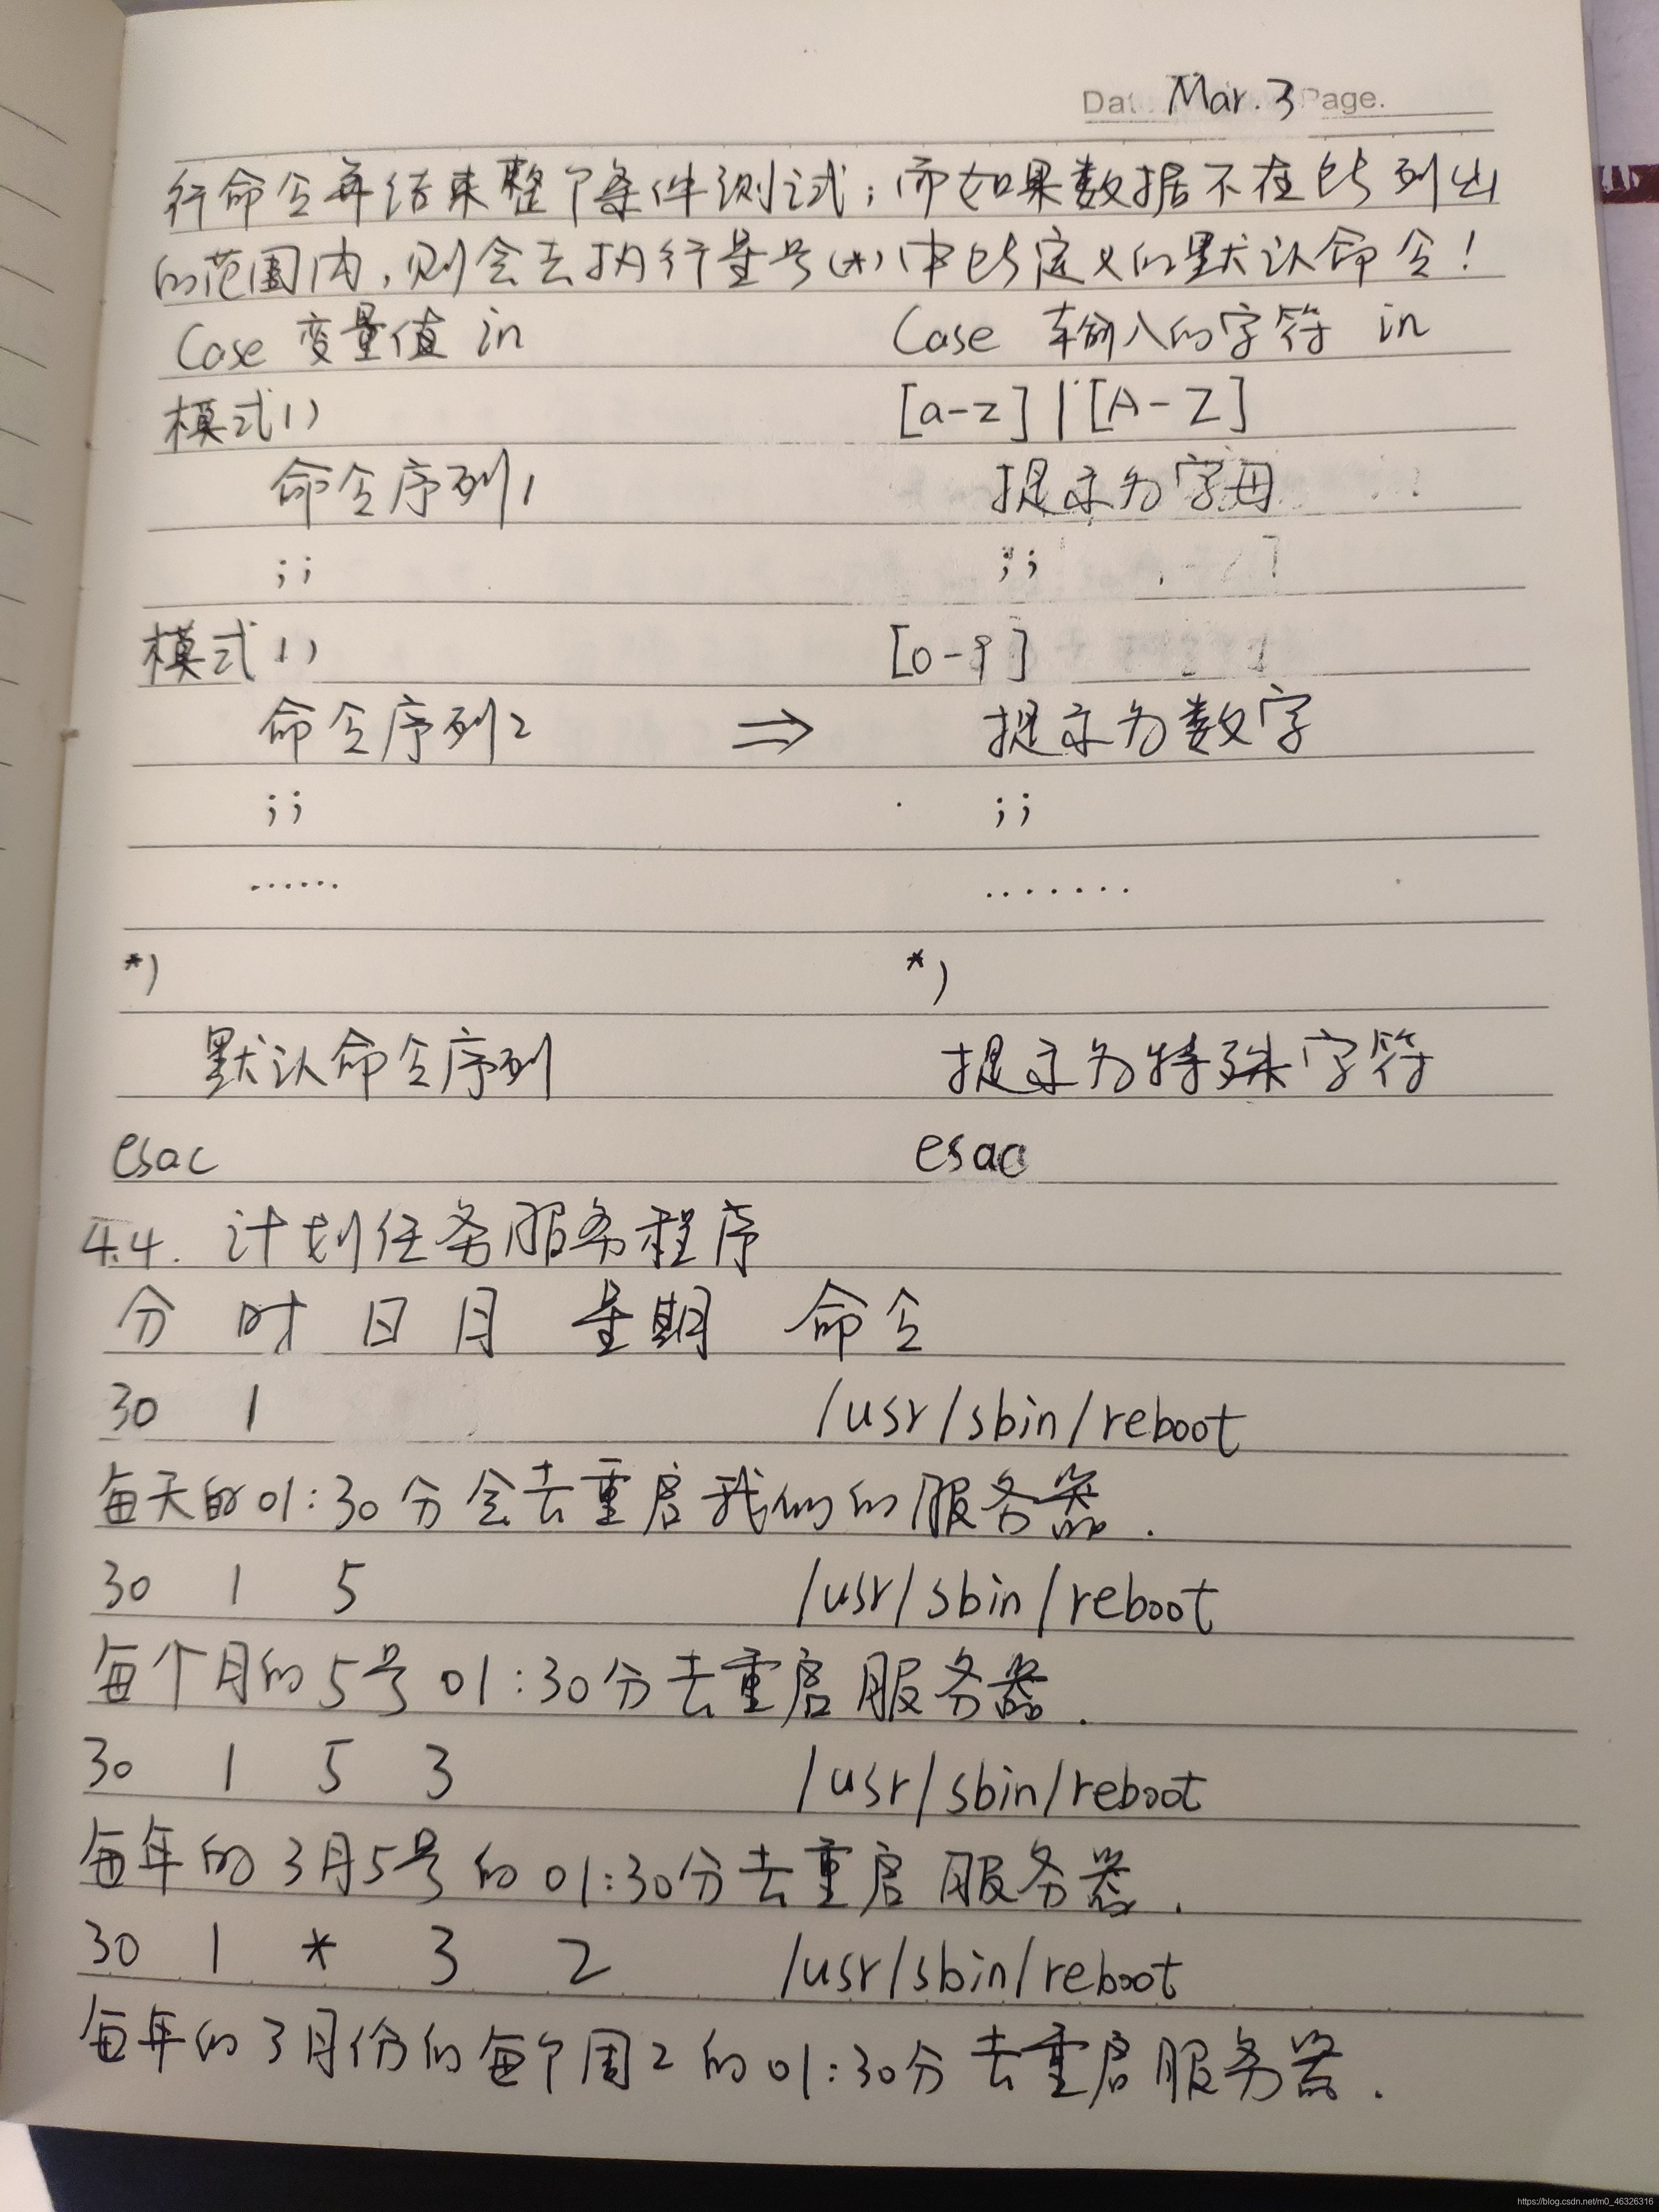 Date Mar. 3 Page.
行命令并结束整个条件测试；而如果数据不在所列出
的范围内，则会去执行星号(*)中所定义的默认命令！
Case 变量值 in Case 输入的字符 in
模式1) [a-z]|[A-Z]
命令序列1 提示为字母
;; ;;
模式1) [0-9]
命令序列2 ⇒ 提示为数字
;; ;;
...... .......
*) *)
默认命令序列 提示为特殊字符
esac esac
4.4. 计划任务服务程序
分 时 日 月 星期 命令
30 1 /usr/sbin/reboot
每天的01:30分会去重启我们的服务器.
30 1 5 /usr/sbin/reboot
每个月的5号01:30分去重启服务器.
30 1 5 3 /usr/sbin/reboot
每年的3月5号的01:30分去重启服务器.
30 1 * 3 2 /usr/sbin/reboot
每年的3月份的每个周2的01:30分去重启服务器.
https://blog.csdn.net/m0_46326316